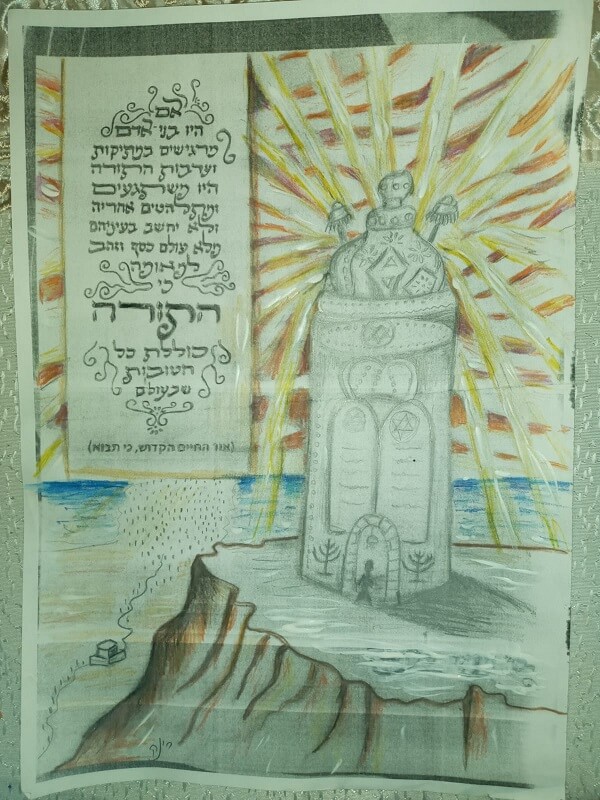 אם
היו בני אדם
מרגישים במתיקות
ועריבות התורה
היו משתגעים
ומתלהטים אחריה
ולא יחשב בעיניהם
מלא עולם כסף וזהב
למאומה
כי
התורה
כוללת כל
הטובות
שבעולם
(אור החיים הקדוש, כי תבוא)